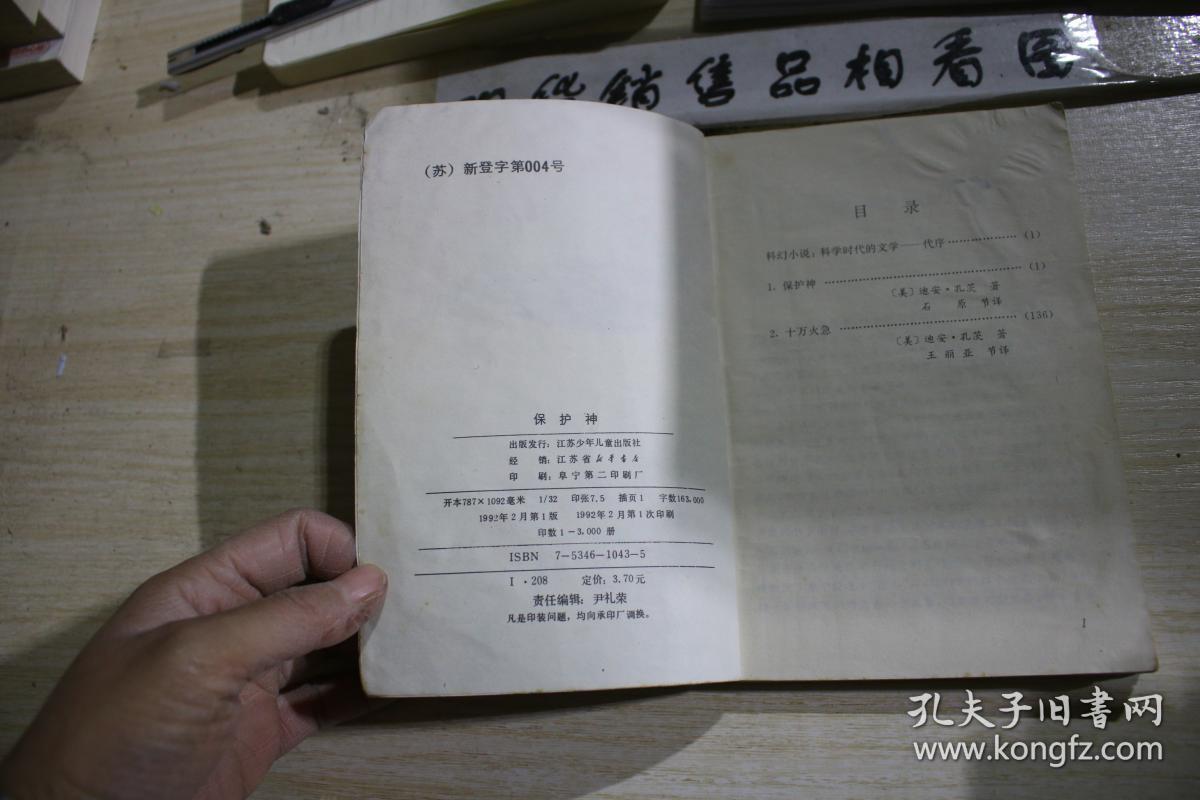 现货销售品相看图
(苏) 新登字第004号
保 护 神
出版发行：江苏少年儿童出版社
经 销：江苏省新华书店
印 刷：阜宁第二印刷厂
开本787×1092毫米 1/32 印张7.5 插页1 字数163,000
1992年2月第1版 1992年2月第1次印刷
印数1－3,000 册
ISBN 7－5346－1043－5
I · 208 定价：3.70元
责任编辑：尹礼荣
凡是印装问题，均向承印厂调换。
目 录
科幻小说：科学时代的文学——代序 ……………… (1)
1. 保护神 ……………………………………… (1)
〔美〕迪安·孔茨 著
石 原 节译
2. 十万火急 …………………………………… (136)
〔美〕迪安·孔茨 著
王 丽 亚 节译
1
孔夫子旧書网
www.kongfz.com